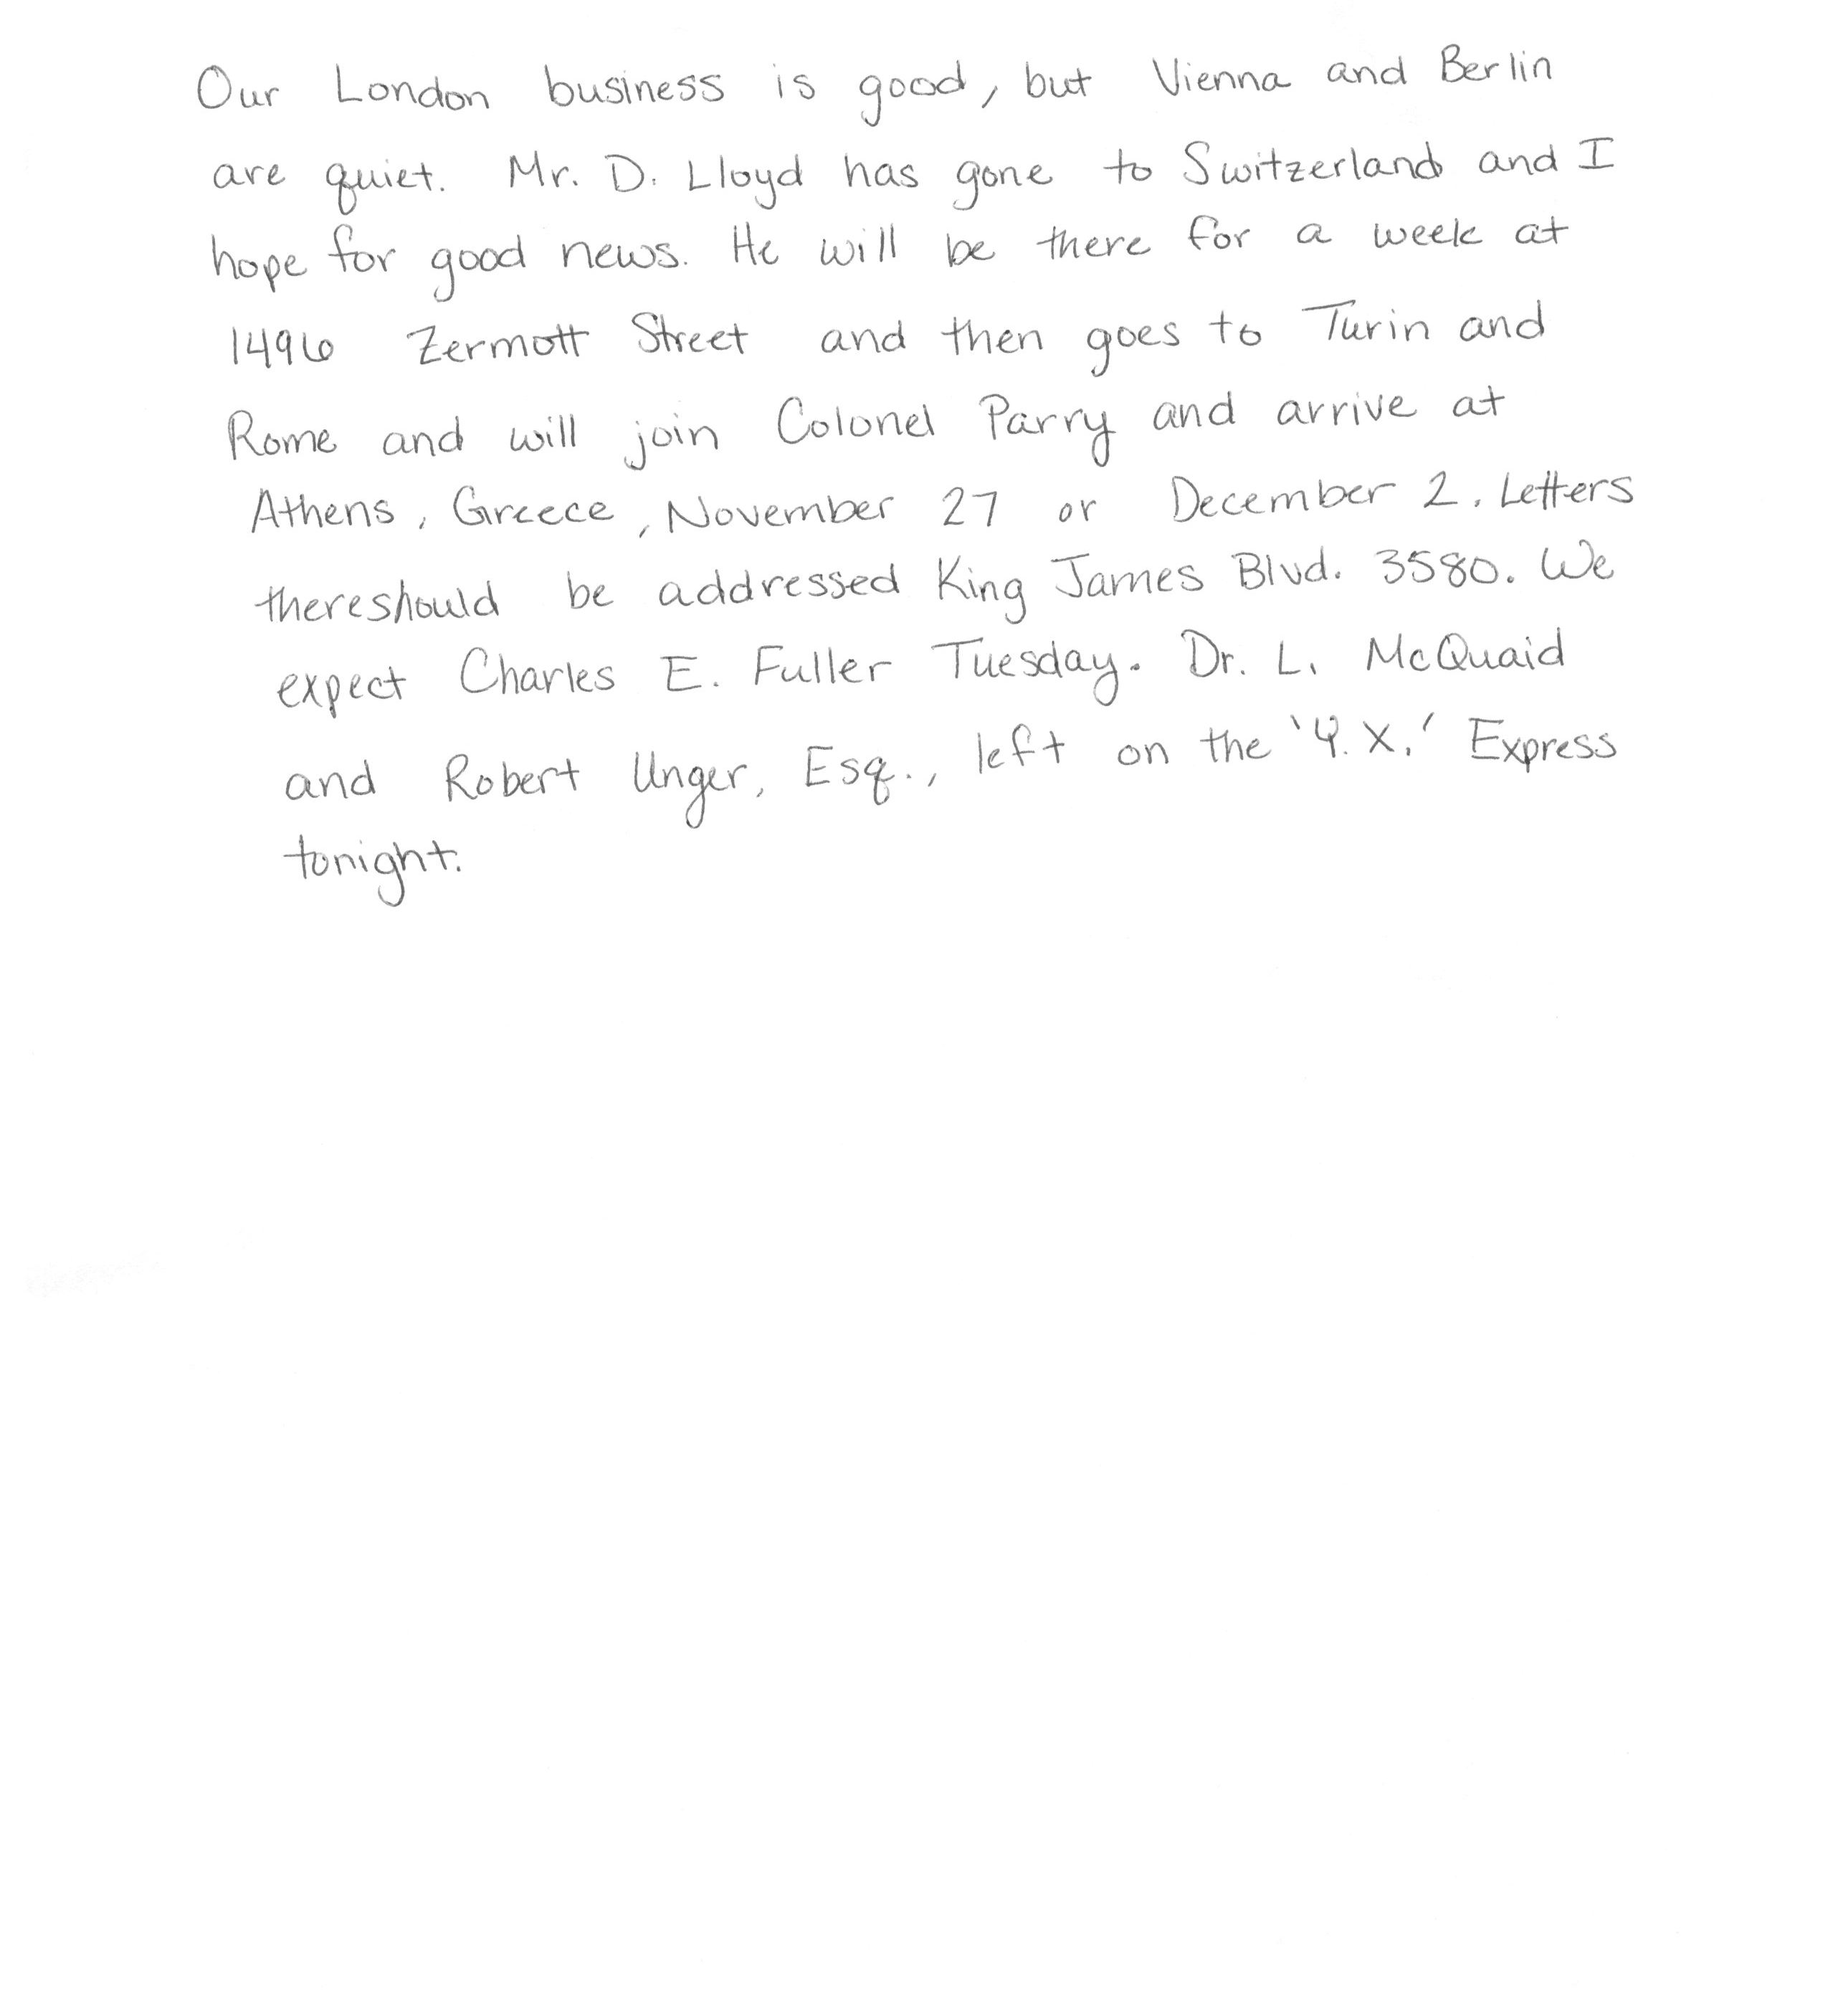 Our London business is good, but Vienna and Berlin
are quiet. Mr. D. Lloyd has gone to Switzerland and I
hope for good news. He will be there for a week at
1496 Zermott Street and then goes to Turin and
Rome and will join Colonel Parry and arrive at
Athens, Greece, November 27 or December 2. Letters
thereshould be addressed King James Blvd. 3580. We
expect Charles E. Fuller Tuesday. Dr. L. McQuaid
and Robert Unger, Esq., left on the 'Y.X.' Express
tonight.